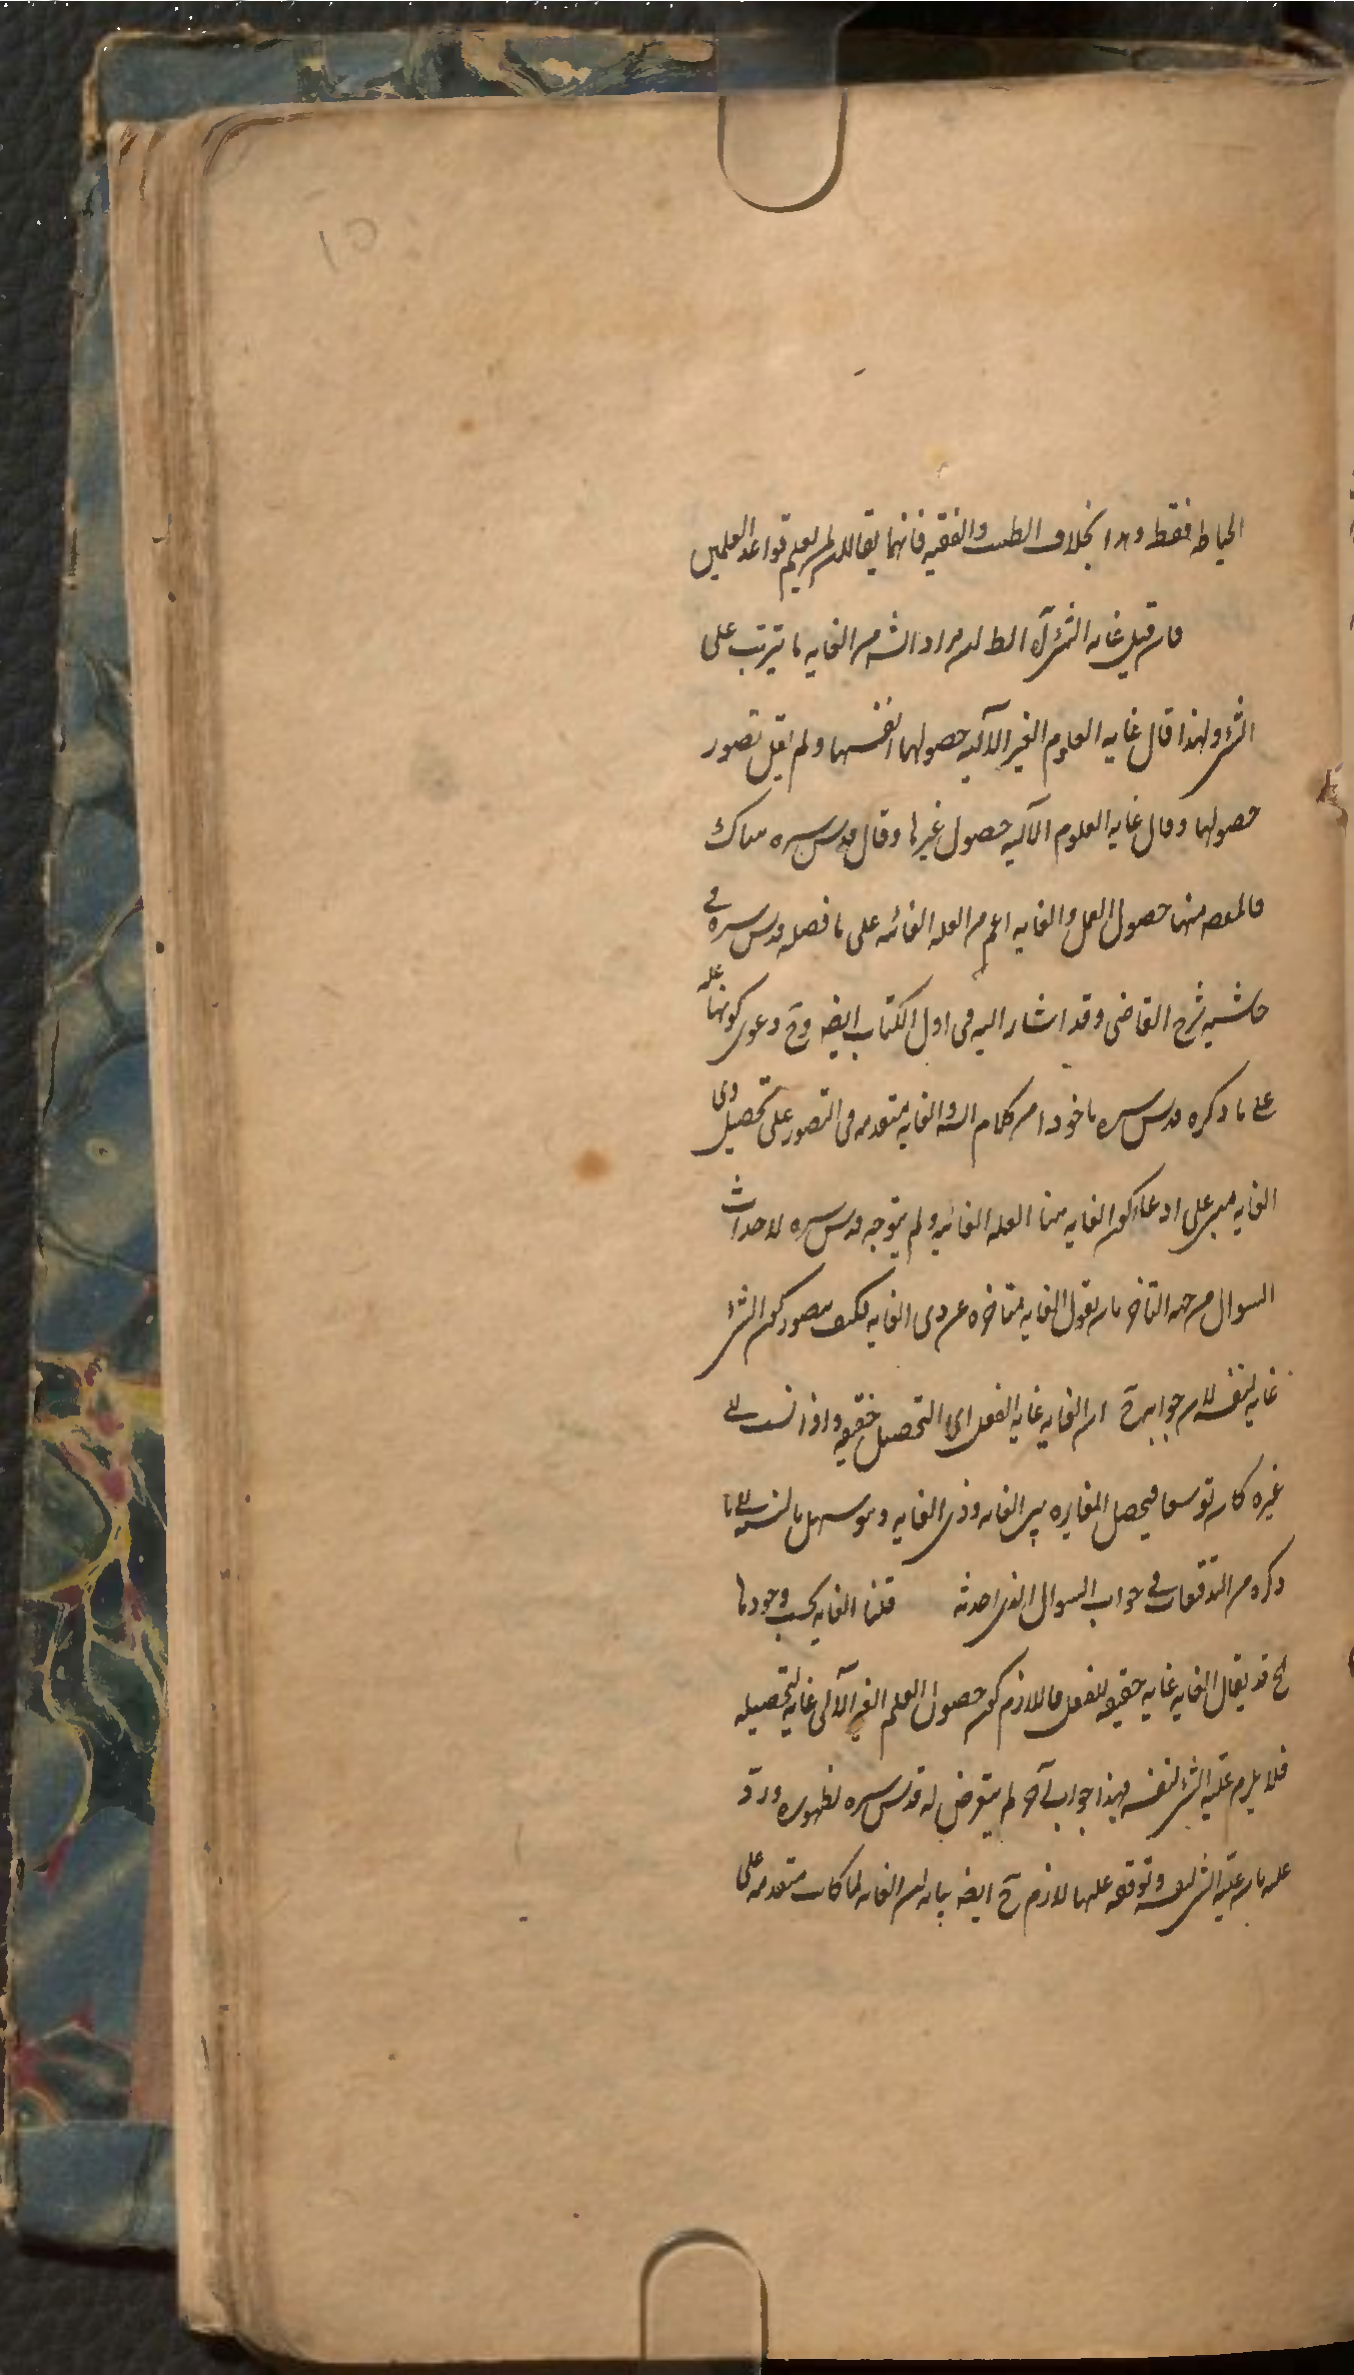 الخياط فقط وهذا بخلاف الطب والفقيه فانهما يقالان لمن يعلم قواعد العلمين
فان قيل غاية الشئ الظ ان مراد الشه من الغايه ما يترتب على
الشئ ولهذا قال غايه العلوم الغير الآليه حصولها انفسها ولم يقل تصور
حصولها وقال غايه العلوم الآليه حصول غيرها وقال قدس سره هناك
فالمقصد منها حصول العمل والغايه اعم من العله الغائيه على ما فصله قدس سره في
حاشيه شرح القاضى وقد اشار اليه فى اول الكتاب ايضه وح دعوى كونها علة
على ما ذكره قدس سره ماخوذا من كلام الشه والغايه متقدمه فى التصور على تحصيل ذى
الغايه مبنى على ادعاء كون الغايه هنا العله الغائيه ولم يتوجه قدس سره لاحداث
السوال من جهه التاخر بان يقول الغايه متاخره عن ذى الغايه فكيف يتصور كون الشئ
غايه لنفسه لان جوابه ح ان الغايه غايه الفعل اى التحصيل حقيقه واذا نسب الى
غيره كان توسعا فيحصل المغايره بين الغايه وذى الغايه وهو سهل بالنسبه الى ما
ذكره من التدقيقات فى جواب السوال الذى احدثه قلنا الغايه بحسب وجودها
الخ قد يقال الغايه غايه حقيقه للفعل فاللازم كون حصول العلم الغير الآلى غايه لتحصيله
فلا يلزم علية الشئ لنفسه فهذا جواب آخر لم يتعرض له قدس سره لظهوره ورد
عليه بان علية الشئ لنفسه وتوقفه عليها لازم ح ايضه بيانه ان الغايه لما كانت متقدمه على